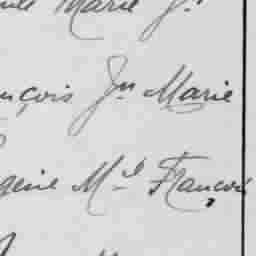 Marie Jn
nçois Jn Marie
gène Mel François